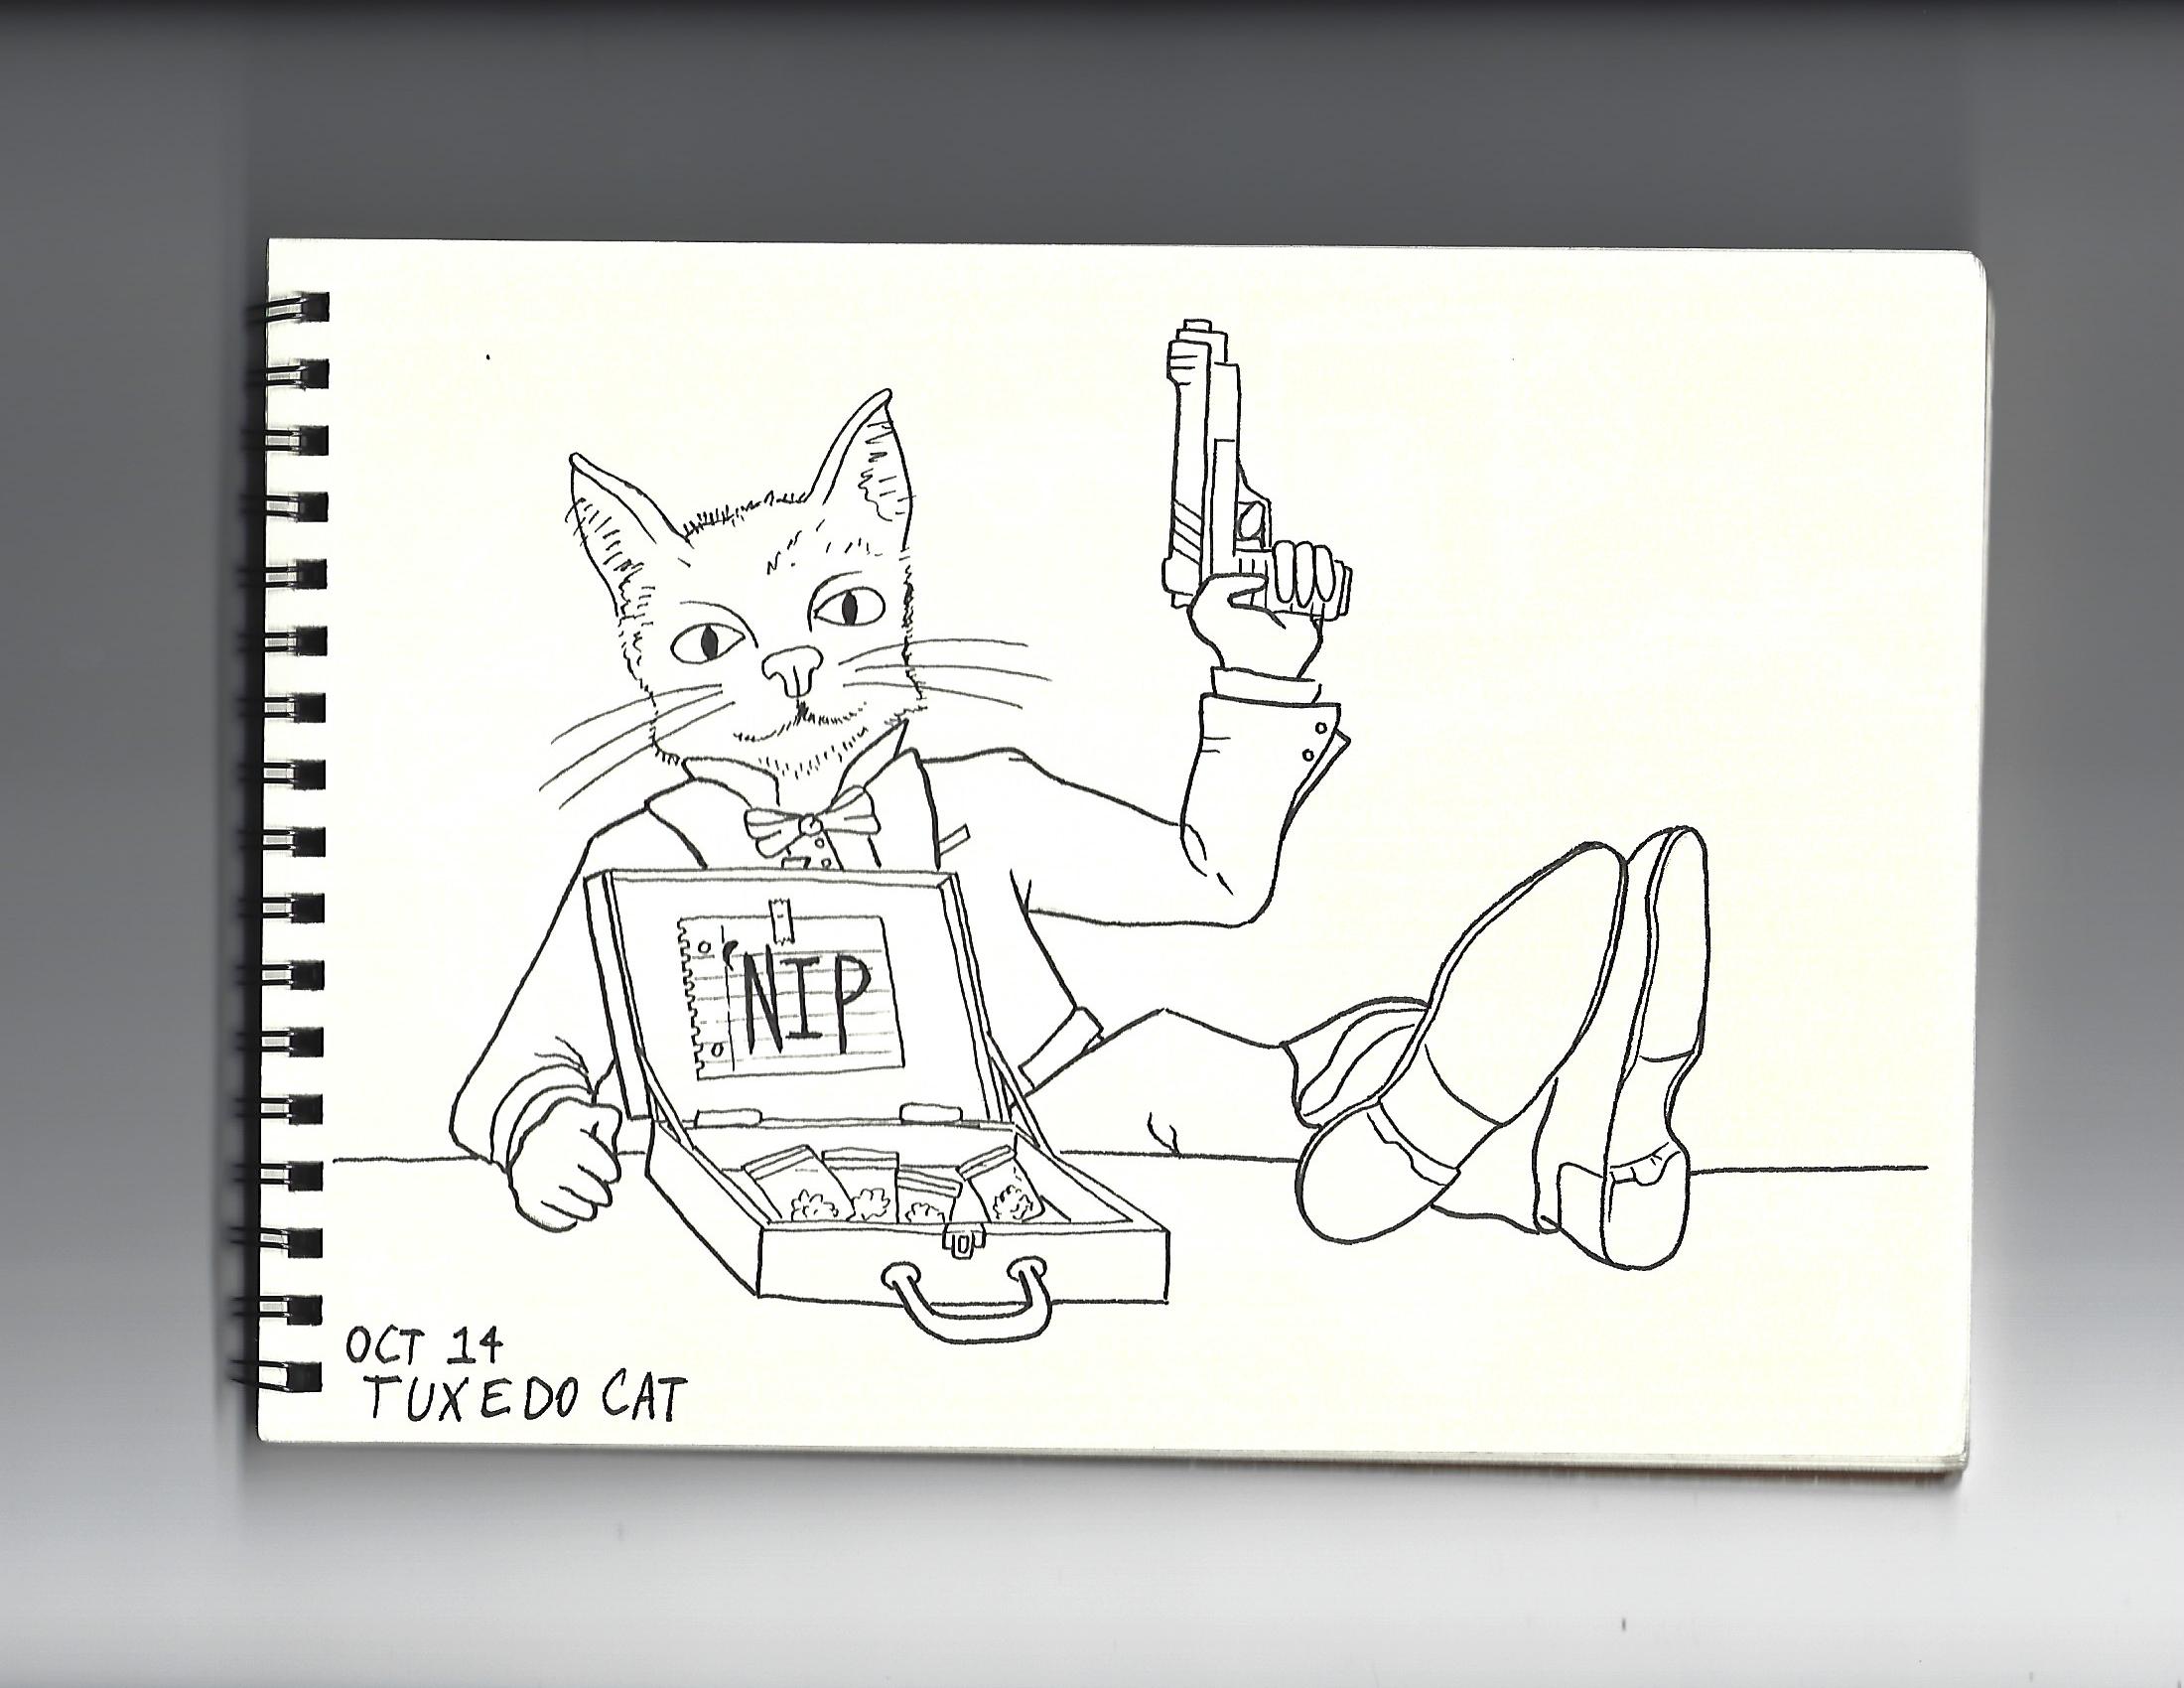 'NIP
OCT 14
TUXEDO CAT